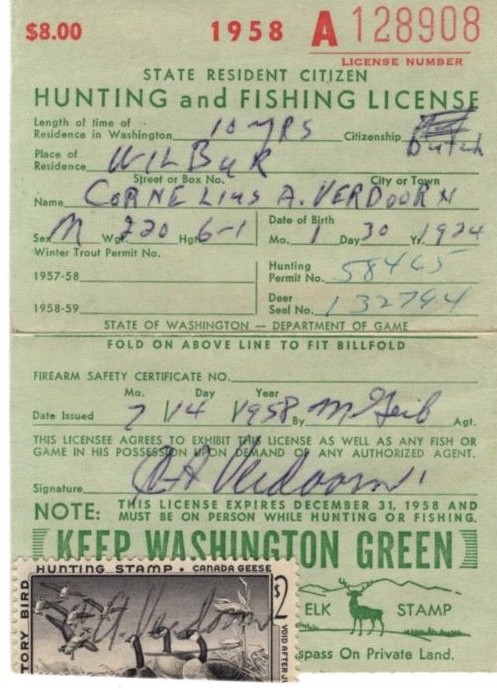 $8.00 1958 A 128908
LICENSE NUMBER
STATE RESIDENT CITIZEN
HUNTING and FISHING LICENSE
Length of time of
Residence in Washington 10 YRS Citizenship Dutch
Place of
Residence WILBUR
Street or Box No. City or Town
Name CORNELIUS A. VERDOORN
Sex M Wgt. 220 Hgt. 6-1 Date of Birth
Mo. 1 Day 30 Yr. 1924
Winter Trout Permit No.
1957-58 Hunting
Permit No. 58465
1958-59 Deer
Seal No. 132794
STATE OF WASHINGTON — DEPARTMENT OF GAME
FOLD ON ABOVE LINE TO FIT BILLFOLD
FIREARM SAFETY CERTIFICATE NO.
Mo. Day Year
Date Issued 7 14 1958 By Agt.
THIS LICENSEE AGREES TO EXHIBIT THIS LICENSE AS WELL AS ANY FISH OR
GAME IN HIS POSSESSION UPON DEMAND OF ANY AUTHORIZED AGENT.
Signature Verdoorn
NOTE: THIS LICENSE EXPIRES DECEMBER 31, 1958 AND
MUST BE ON PERSON WHILE HUNTING OR FISHING.
KEEP WASHINGTON GREEN
HUNTING STAMP • CANADA GEESE
TORY BIRD
$2
VOID AFTER J
Verdoorn
ELK STAMP
spass On Private Land.